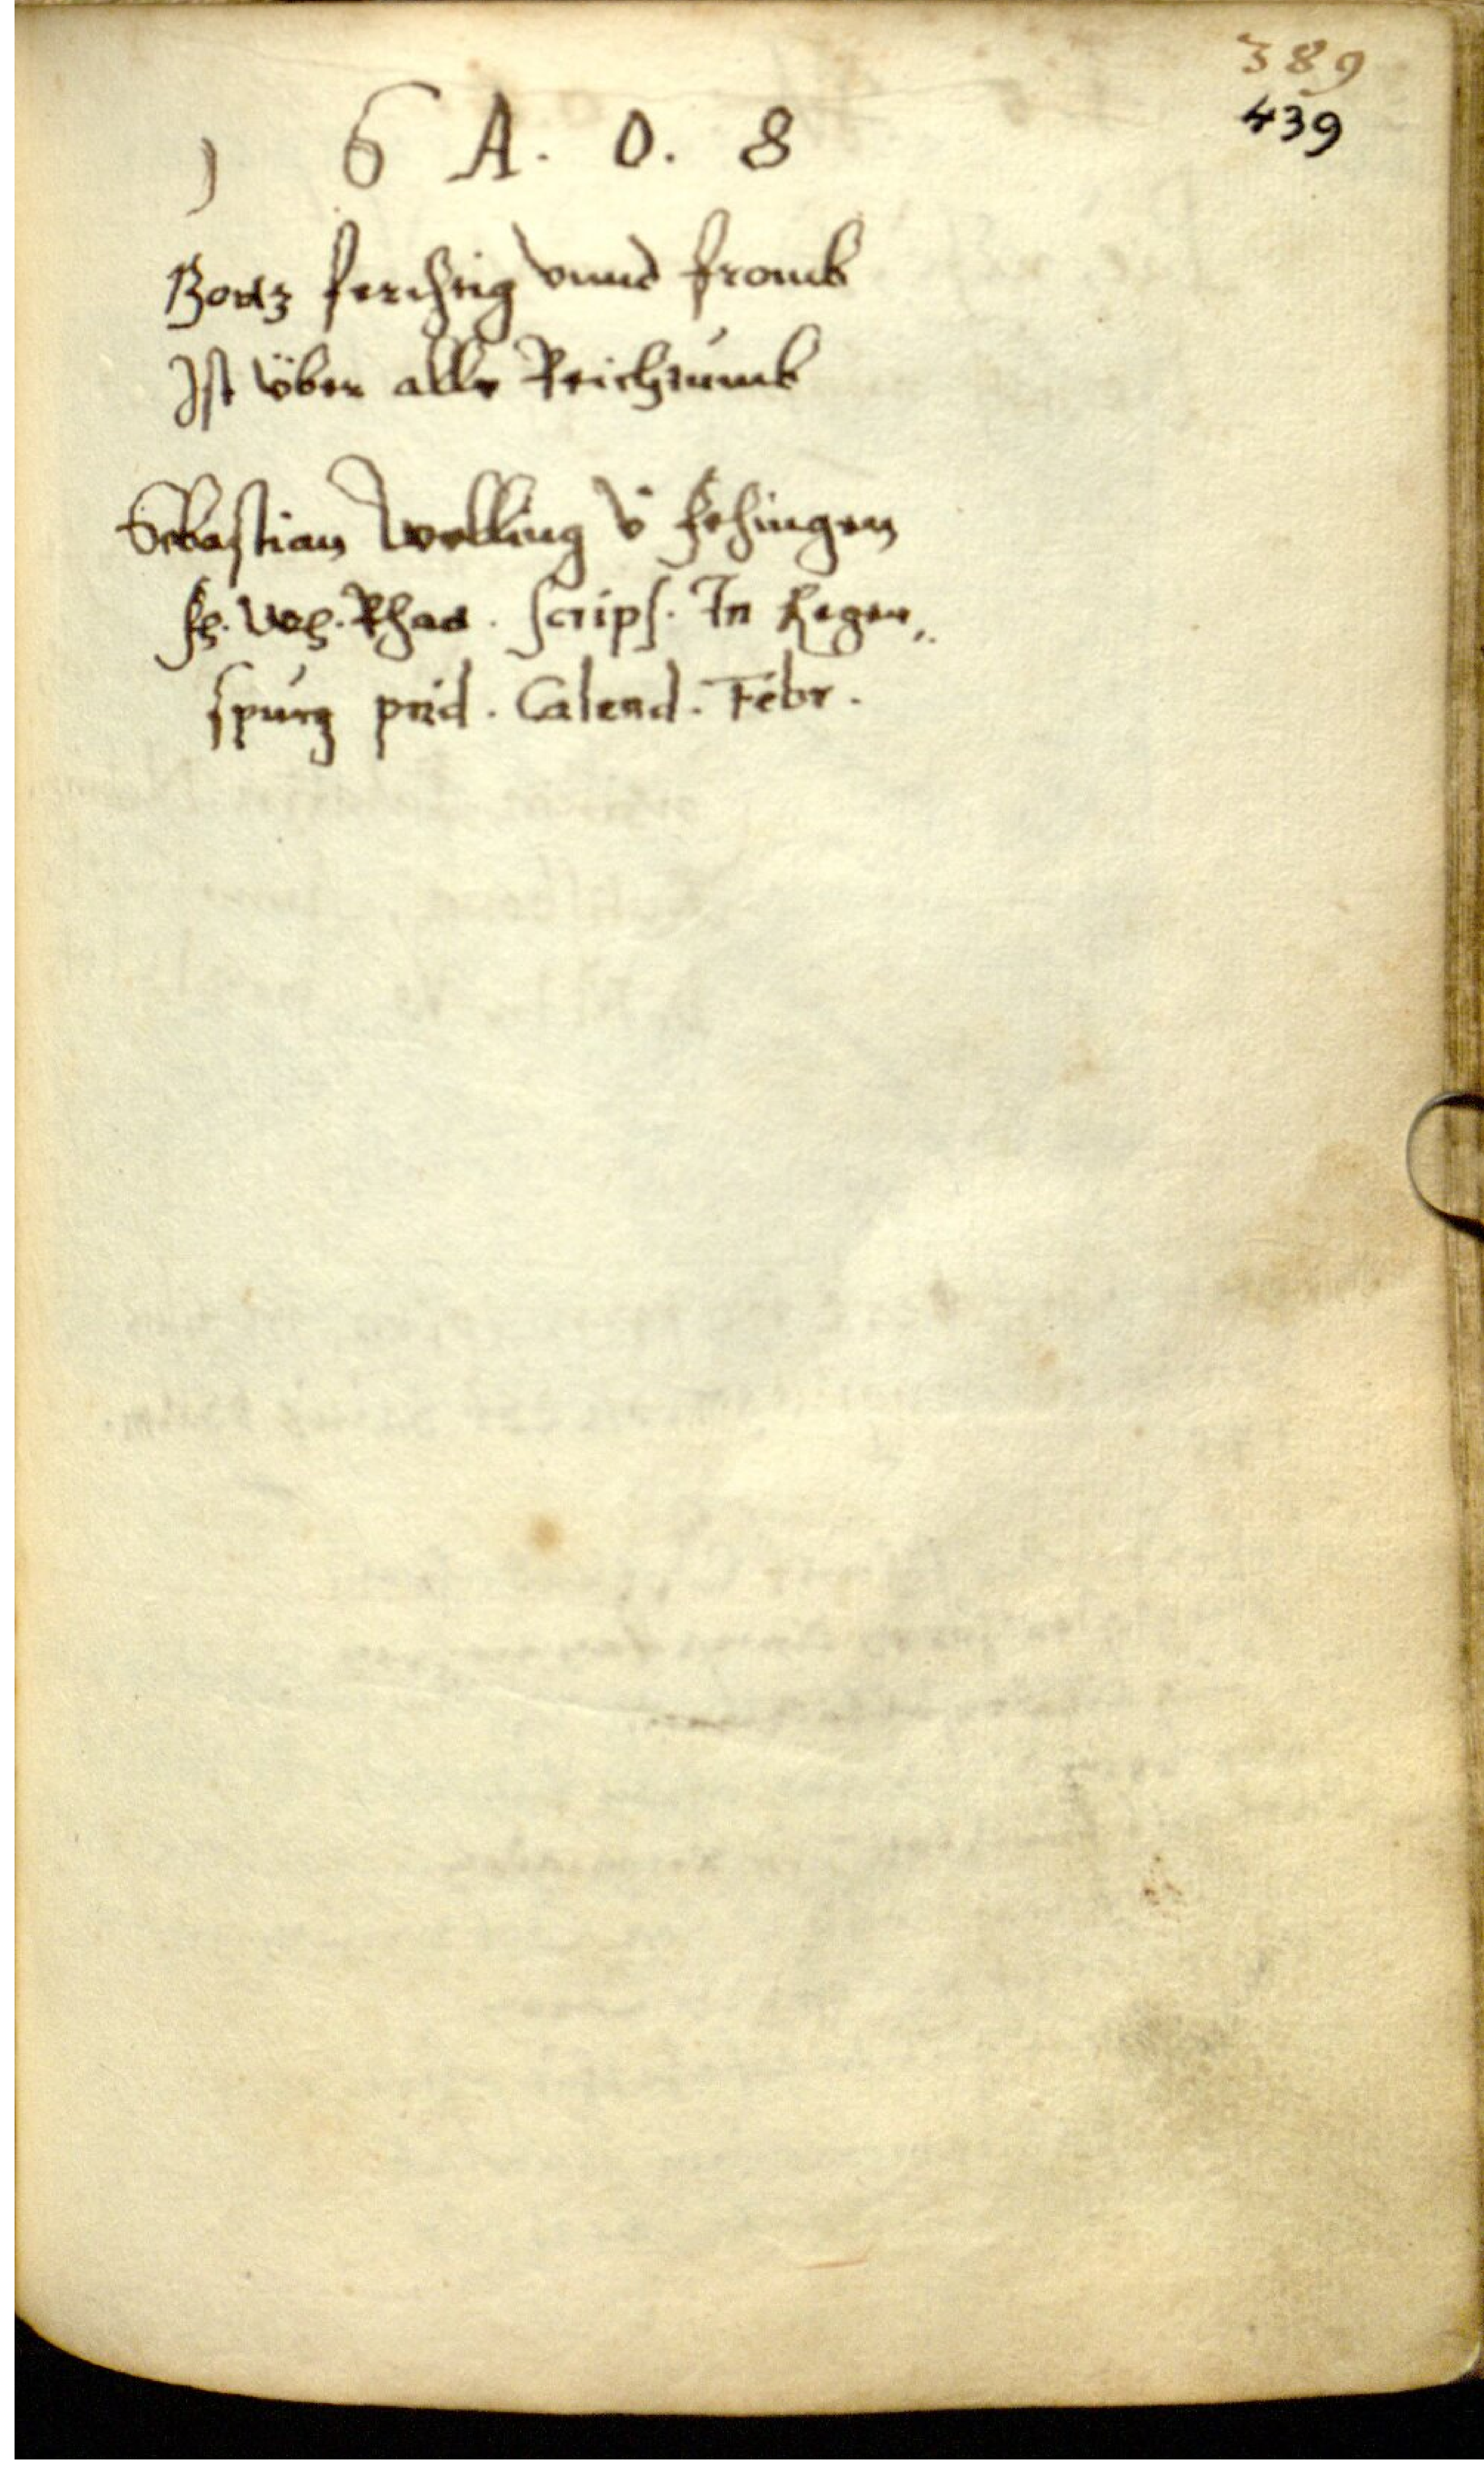 389
439
1 6 A. O. 8
Gotz ferchtig vnnd fromb
Ist über alle Reichtumb
Sebastian Welling v̈ Fehingen
fh. Wh. Rhat. scrips. In Regen„
spurg prid. Calend. Febr.